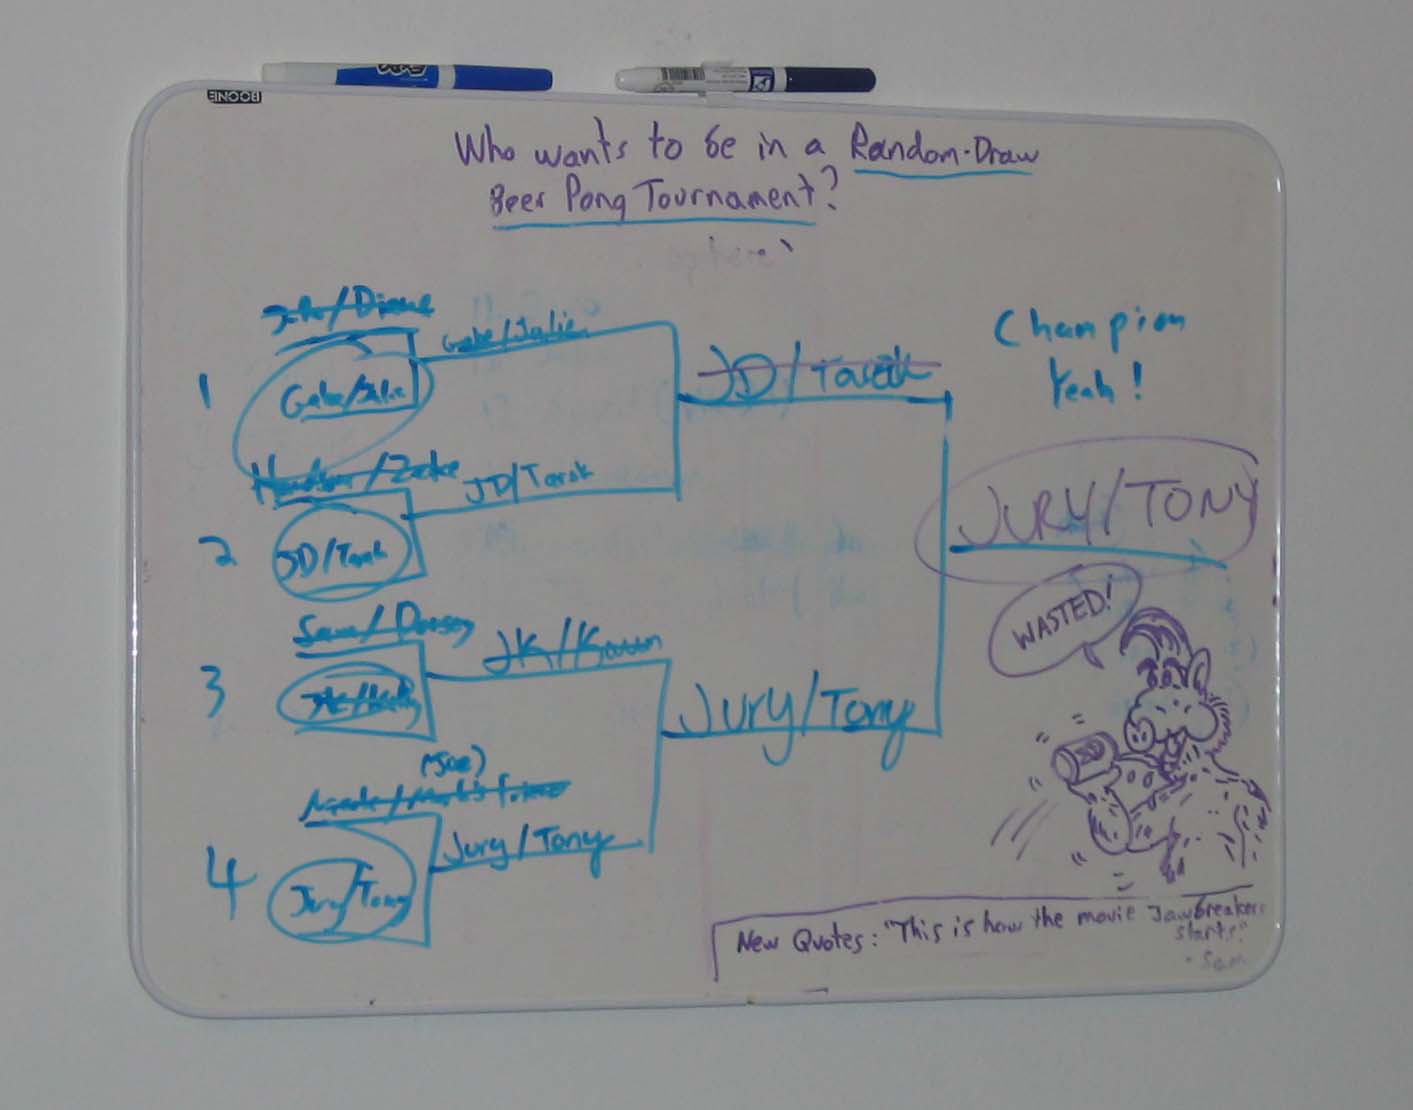 BOONE
EXPO
Who wants to be in a Random-Draw
Beer Pong Tournament?
Champion
Yeah!
/Diane
1
Gabe/Julie
Gabe/Julie
JD/Tarek
/Zeke
JD/Tarek
2
JD/Tarek
JURY/TONY
WASTED!
Sam/
JK/
3
JK/
Jury/Tony
(Joe)
/Mark's friend
Jury/Tony
4
Jury/Tony
New Quotes: "This is how the movie Jawbreakers
starts"
- Sam